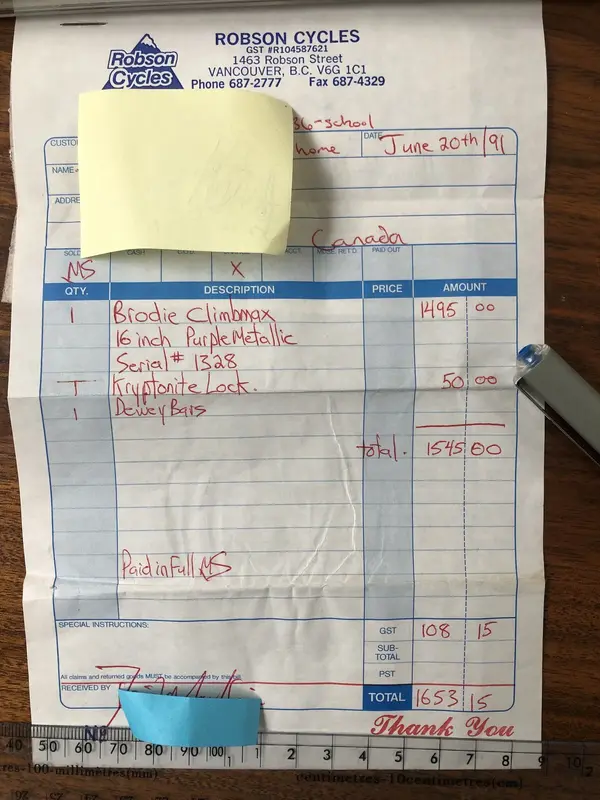 Robson
Cycles
ROBSON CYCLES
GST #R104587621
1463 Robson Street
VANCOUVER, B.C. V6G 1C1
Phone 687-2777 Fax 687-4329
36-school
CUSTO
home
DATE June 20th/91
NAME
ADDRE
Canada
SOLD
CASH
C.O.D.
ACCT.
MDSE. RET'D.
PAID OUT
MS
X
QTY. DESCRIPTION PRICE AMOUNT
1 Brodie Climbmax 1495 00
16 inch Purple Metallic
Serial # 1328
1 Kryptonite Lock. 50 00
1 Dewey Bars
total. 1545 00
Paid in Full MS
SPECIAL INSTRUCTIONS:
GST 108 15
SUB-
TOTAL
PST
All claims and returned goods MUST be accompanied by this bill.
RECEIVED BY
TOTAL 1653 15
Nº
Thank You
40 50 60 70 80 90 100 1 2 3 4 5 6 7 8 9 10
res-100-millimetres(mm) centimetres-10centimetres(cm)